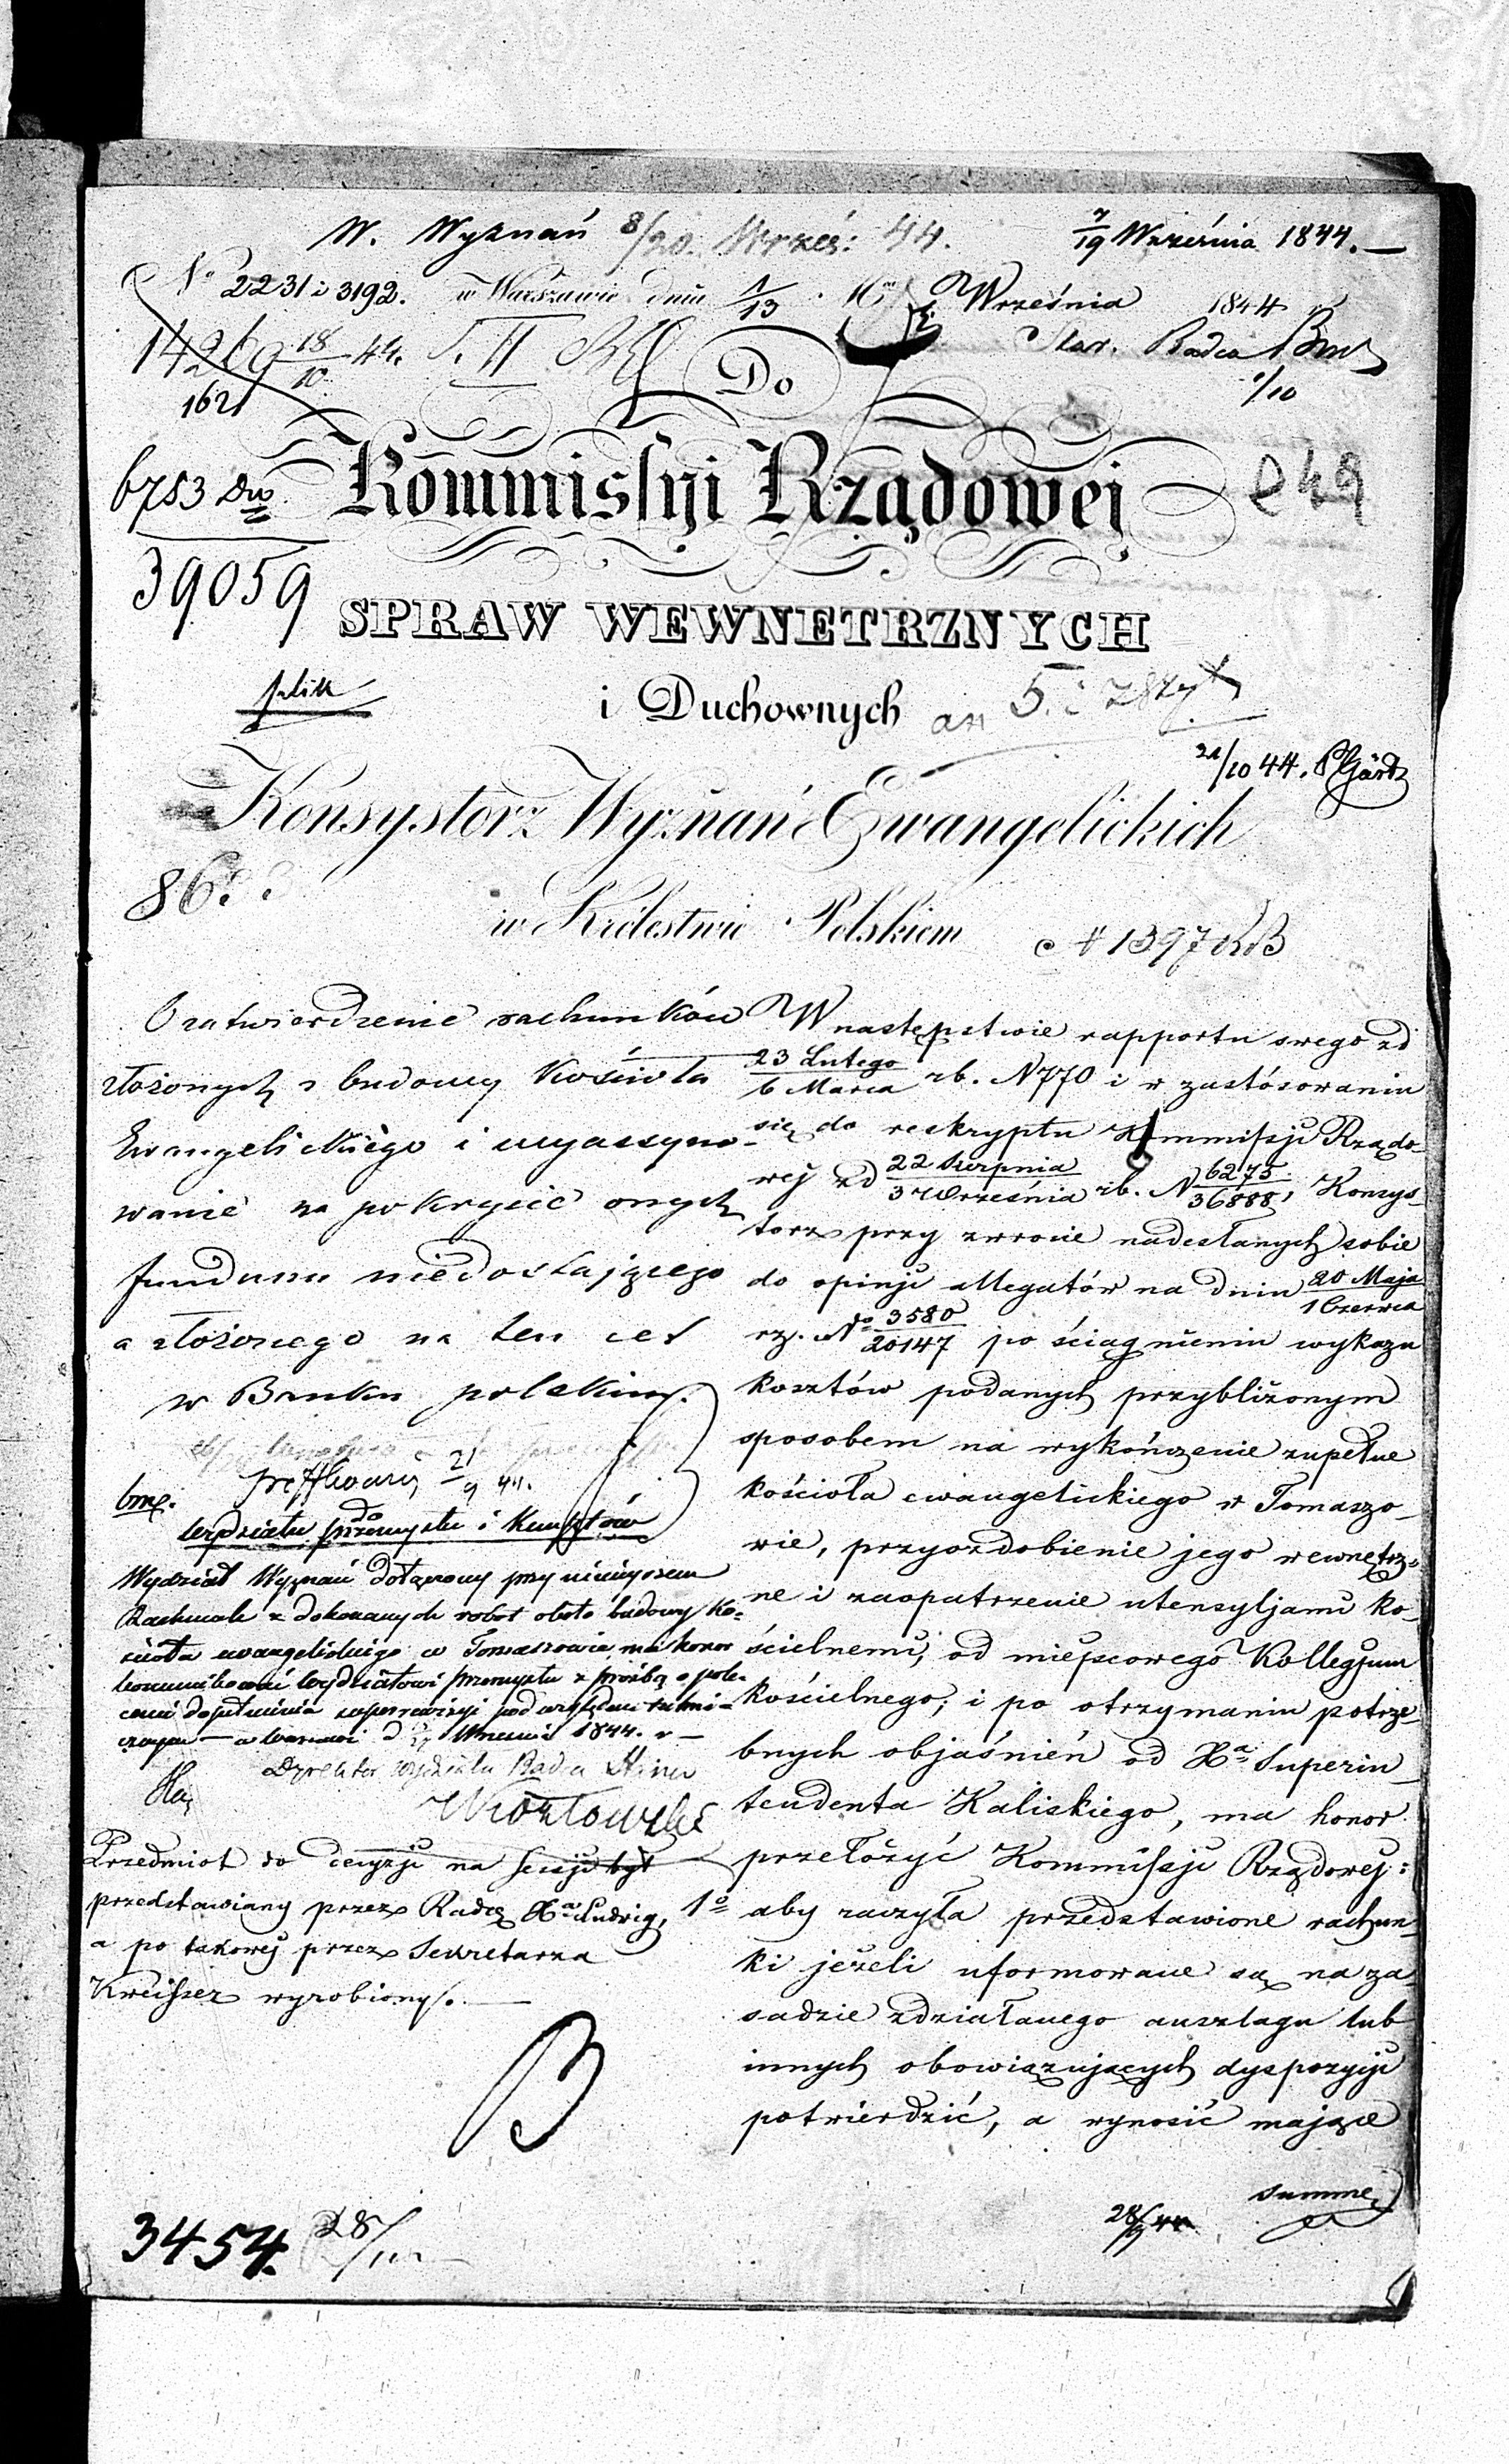 W. Wyznań 8/20. Wrześ: 44.
7/19 Września 1844.—
No 2231 i 3192. w Warszawie dnia 1/13 Września 1844
14269 18/10 44. S. II
Radca
1/10
1621
Do
6753
39059
Kommissyi Rządowej
249
SPRAW WEWNETRZNYCH
i Duchownych
21/10 44.
Konsystorz Wyznań Ewangelickich
86.
w Królestwie Polskiem
N 1397
O zatwierdzenie rachunków
złożonych z budowy kościoła
Ewangelickiego i wyassygno-
wanie na pokrycie onych
funduszu niedostającego
a złożonego na ten cel
w Banku polskim.
21/9 44.
do
Wydziału przemysłu i Kunsztów
Wydział Wyznań dołączony przy niniejszem
Rachunek z dokonanych robot około budowy Ko=
ścioła ewangelickiego w Tomaszowie, ma honor
kommunikować Wydziałowi Przemysłu z prośbą o pole=
cenie dopełnienia superrewizji pod względem techni=
cznym — w Warszawie d Września 1844. r —
Dyrektor Wydziału Radca Stanu
Przedmiot do decyzji na sessji był
przedstawiany przez Radcę Xa Ludwig,
a po takowej przez Sekretarza
Kreisser wyrobiony.
W następstwie rapportu swego z d
23 Lutego/6 Marca rb. N 770 i w zastósowaniu
się do reskryptu Kommissji Rządo-
wej z d 22 Sierpnia/3 Września rb. N 6275/36888, Konsys-
torz przy zwrocie nadesłanych sobie
do opinji allegatów na dniu 20 Maja/1 Czerwca
rz. No 3580/20147 po ściągnieniu wykazu
kosztów podanych przybliżonym
sposobem na wykończenie zupełne
kościoła ewangelickiego w Tomaszo-
wie, przyozdobienie jego wewnętrz-
ne i zaopatrzenie utensyljami ko-
ścielnemi, od miejscowego Kollegjum
kościelnego; i po otrzymaniu potrze-
bnych objaśnień od Xa Superin-
tendenta Kaliskiego, ma honor
przełożyć Kommissji Rządowej:
1o aby raczyła przedstawione rachun-
ki jeżeli uformowane są na za-
sadzie zdziałanego anszlagu lub
innych obowiązujących dyspozycji
potwierdzić, a wynosić mające
summę
3454.
28/
28/9 44